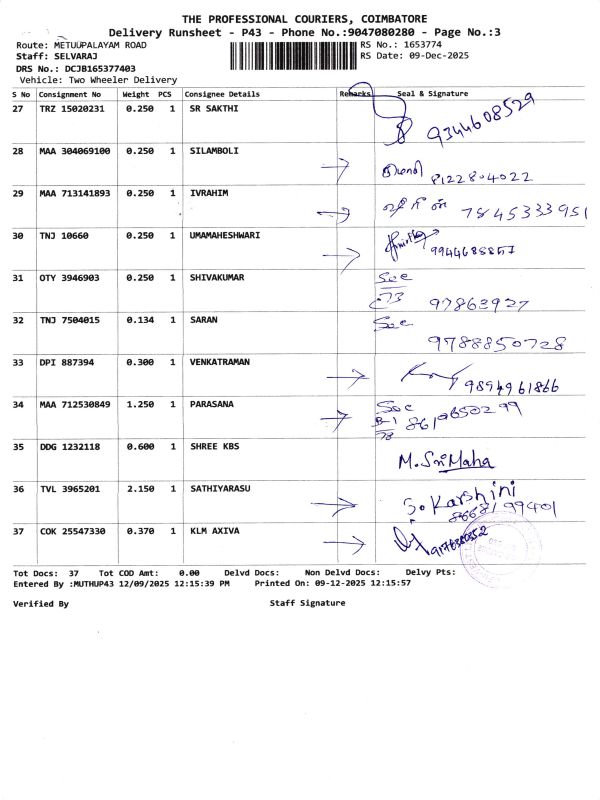 THE PROFESSIONAL COURIERS, COIMBATORE
Delivery Runsheet - P43 - Phone No.:9047080280 - Page No.:3
Route: METUUPALAYAM ROAD RS No.: 1653774
Staff: SELVARAJ RS Date: 09-Dec-2025
DRS No.: DCJB165377403
Vehicle: Two Wheeler Delivery
S No Consignment No Weight PCS Consignee Details Remarks Seal & Signature
27 TRZ 15020231 0.250 1 SR SAKTHI 9344608529
28 MAA 304069100 0.250 1 SILAMBOLI
8122804022
29 MAA 713141893 0.250 1 IVRAHIM
7845333951
30 TNJ 10660 0.250 1 UMAMAHESHWARI
9944688857
31 OTY 3946903 0.250 1 SHIVAKUMAR Soc
C73 97863927
32 TNJ 7504015 0.134 1 SARAN Soc
9788850728
33 DPI 887394 0.300 1 VENKATRAMAN
9894961866
34 MAA 712530849 1.250 1 PARASANA Soc
B-1
73
35 DDG 1232118 0.600 1 SHREE KBS
M.SriMaha
36 TVL 3965201 2.150 1 SATHIYARASU
So Karshini
37 COK 25547330 0.370 1 KLM AXIVA
Tot Docs: 37 Tot COD Amt: 0.00 Delvd Docs: Non Delvd Docs: Delvy Pts:
Entered By :MUTHUP43 12/09/2025 12:15:39 PM Printed On: 09-12-2025 12:15:57
Verified By Staff Signature